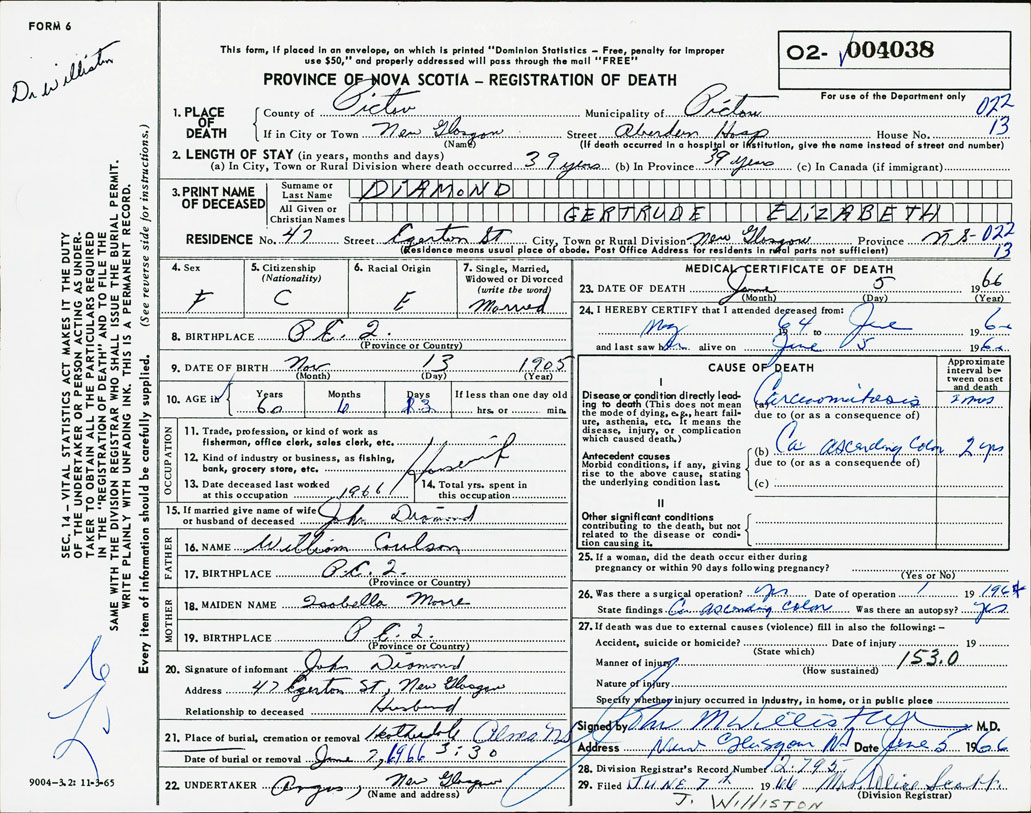 FORM 6
Dr Williston
This form, if placed in an envelope, on which is printed "Dominion Statistics – Free, penalty for improper
use $50," and properly addressed will pass through the mail "FREE"
PROVINCE OF NOVA SCOTIA – REGISTRATION OF DEATH
02- 004038
For use of the Department only
1. PLACE OF DEATH
County of Pictou Municipality of Pictou 022
If in City or Town New Glasgow Street Aberdeen Hosp House No. 13
(Name) (If death occurred in a hospital or institution, give the name instead of street and number)
2. LENGTH OF STAY (in years, months and days)
(a) In City, Town or Rural Division where death occurred 39 years (b) In Province 39 years (c) In Canada (if immigrant)
3. PRINT NAME OF DECEASED
Surname or Last Name DIAMOND
All Given or Christian Names GERTRUDE ELIZABETH
RESIDENCE No. 47 Street Egerton St City, Town or Rural Division New Glasgow Province N S 022
(Residence means usual place of abode. Post Office Address for residents in rural parts not sufficient) 13
4. Sex F
5. Citizenship (Nationality) C
6. Racial Origin E
7. Single, Married, Widowed or Divorced (write the word) Married
8. BIRTHPLACE P.E.I.
(Province or Country)
9. DATE OF BIRTH Nov 13 1905
(Month) (Day) (Year)
10. AGE in Years Months Days If less than one day old
60 6 23 hrs. or min.
OCCUPATION
11. Trade, profession, or kind of work as
fisherman, office clerk, sales clerk, etc.
12. Kind of industry or business, as fishing,
bank, grocery store, etc. Housewife
13. Date deceased last worked
at this occupation 1966
14. Total yrs. spent in
this occupation
15. If married give name of wife
or husband of deceased John Diamond
FATHER
16. NAME William Coulson
17. BIRTHPLACE P.E.I.
(Province or Country)
MOTHER
18. MAIDEN NAME Isabella Moore
19. BIRTHPLACE P E I.
(Province or Country)
20. Signature of informant John Diamond
Address 47 Egerton St, New Glasgow
Relationship to deceased Husband
21. Place of burial, cremation or removal Alma NS
Date of burial or removal June 7, 1966 3:30
22. UNDERTAKER Angus, New Glasgow
(Name and address)
MEDICAL CERTIFICATE OF DEATH
23. DATE OF DEATH June 5 1966
(Month) (Day) (Year)
24. I HEREBY CERTIFY that I attended deceased from:
May 1964 to June 196
and last saw h alive on June 5 196
CAUSE OF DEATH
Approximate interval between onset and death
I
Disease or condition directly leading to death (This does not mean the mode of dying, e.g., heart failure, asthenia, etc. It means the disease, injury, or complication which caused death.)
(a) Carcinomatosis 2 mos
due to (or as a consequence of)
Antecedent causes
Morbid conditions, if any, giving rise to the above cause, stating the underlying condition last.
(b) Ca ascending colon 2 yrs
due to (or as a consequence of)
(c)
II
Other significant conditions
contributing to the death, but not related to the disease or condition causing it.
25. If a woman, did the death occur either during
pregnancy or within 90 days following pregnancy?
(Yes or No)
26. Was there a surgical operation? yes Date of operation 19 1964
State findings Ca ascending colon Was there an autopsy? yes
27. If death was due to external causes (violence) fill in also the following: –
Accident, suicide or homicide? Date of injury 19
(State which)
Manner of injury 153.0
(How sustained)
Nature of injury
Specify whether injury occurred in Industry, in home, or in public place
Signed by John M Williston M.D.
Address New Glasgow NS Date June 5 1966
28. Division Registrar's Record Number 2795
29. Filed JUNE 7th 1966 Mrs. Alice
(Division Registrar)
J. WILLISTON
SEC. 14 – VITAL STATISTICS ACT MAKES IT THE DUTY
OF THE UNDERTAKER OR PERSON ACTING AS UNDER-
TAKER TO OBTAIN ALL THE PARTICULARS REQUIRED
IN THE "REGISTRATION OF DEATH" AND TO FILE THE
SAME WITH THE DIVISION REGISTRAR WHO SHALL ISSUE THE BURIAL PERMIT.
WRITE PLAINLY WITH UNFADING INK. THIS IS A PERMANENT RECORD.
Every item of information should be carefully supplied. (See reverse side for instructions.)
9004-3.2: 11-3-65